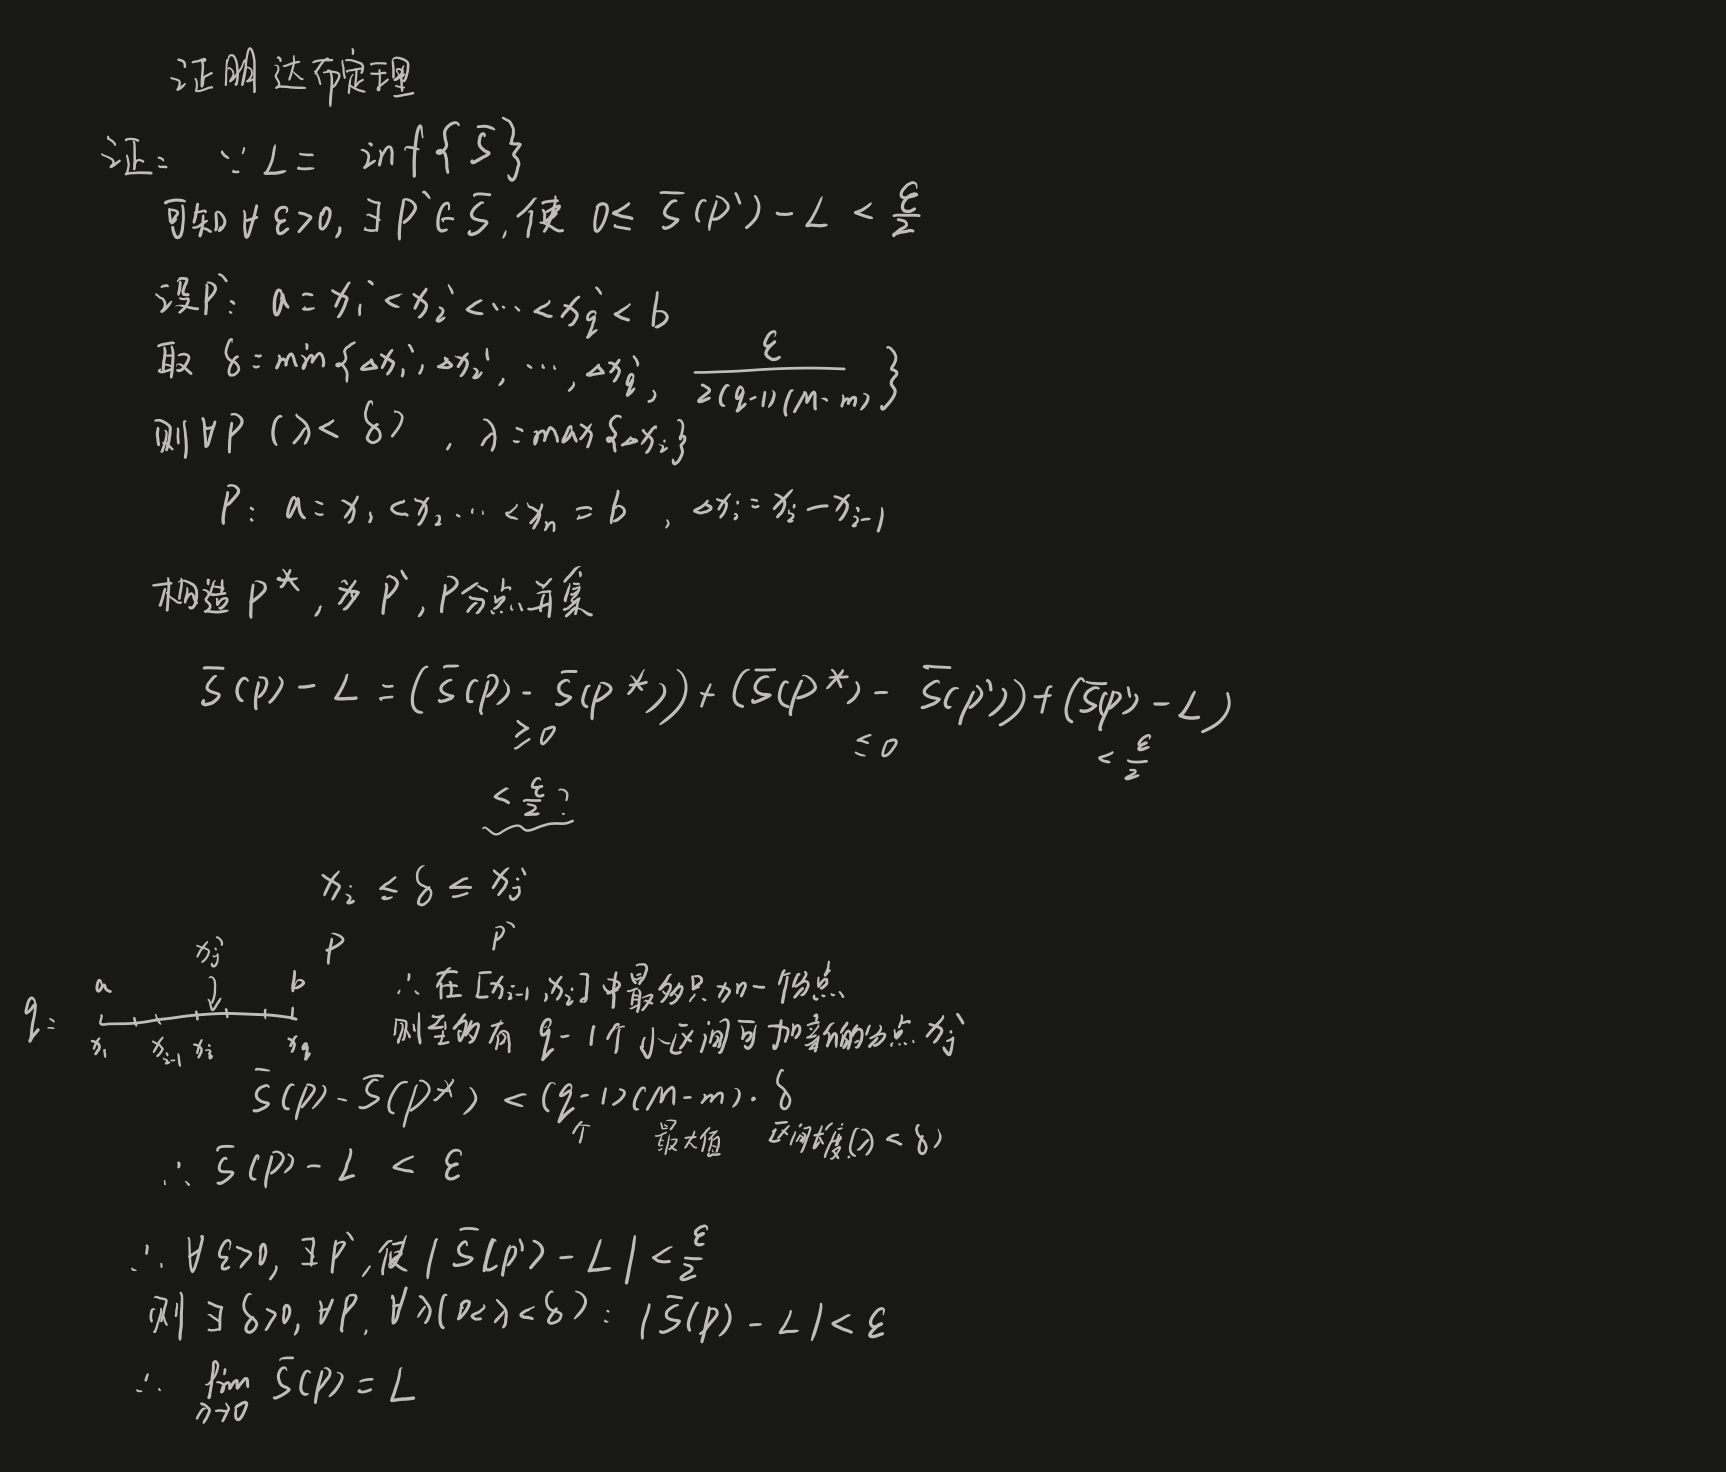 证明达布定理
证: ∵ L = inf{S̄}
可知 ∀ε>0, ∃P`∈S̄, 使 0≤ S̄(P`) - L < ε/2
设P`: a = x₁` < x₂` < … < x_q` < b
取 δ = min{△x₁`, △x₂`, …, △x_q`, ε/(2(q-1)(M-m))}
则∀P (λ< δ) , λ = max{△xᵢ}
P: a = x₁ < x₂ … < xₙ = b , △xᵢ = xᵢ - xᵢ₋₁
构造 P*, 为 P`, P分点并集
S̄(P) - L = (S̄(P) - S̄(P*)) + (S̄(P*) - S̄(P`)) + (S̄(P`) - L)
≥0 ≤0 < ε/2
< ε/2 ?
xᵢ ≤ δ ≤ xⱼ`
P P`
q: a xⱼ` b
x₁ xᵢ₋₁ xᵢ x_q
∴ 在 [xᵢ₋₁, xᵢ] 中最多只加一个分点
则至多有 q-1个小区间可加新的分点 xⱼ`
S̄(P) - S̄(P*) < (q-1)(M-m)·δ
个 最大值 区间长度(λ < δ)
∴ S̄(P) - L < ε
∴ ∀ε>0, ∃P`, 使 |S̄(P`) - L| < ε/2
则 ∃δ>0, ∀P, ∀λ(0<λ<δ): |S̄(P) - L| < ε
∴ lim λ→0 S̄(P) = L